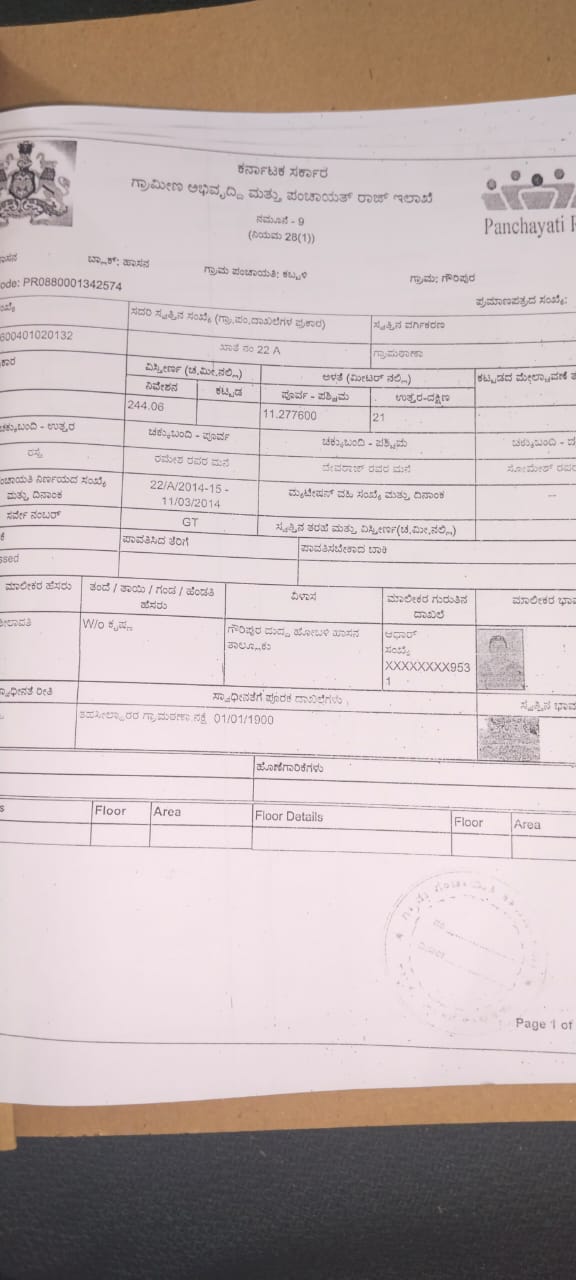 ಕರ್ನಾಟಕ ಸರ್ಕಾರ
ಗ್ರಾಮೀಣ ಅಭಿವೃದ್ದಿ ಮತ್ತು ಪಂಚಾಯತ್ ರಾಜ್ ಇಲಾಖೆ
ನಮೂನೆ - 9
(ನಿಯಮ 28(1))
Panchayati R
ಾಸನ ಬ್ಲಾಕ್: ಹಾಸನ ಗ್ರಾಮ ಪಂಚಾಯತಿ: ಕಟ್ಟಳಿ ಗ್ರಾಮ: ಗೌರಿಪುರ
ode: PR0880001342574 ಪ್ರಮಾಣಪತ್ರದ ಸಂಖ್ಯೆ:
ಂಖ್ಯೆ ಸದರಿ ಸ್ವತ್ತಿನ ಸಂಖ್ಯೆ (ಗ್ರಾ.ಪಂ.ದಾಖಲೆಗಳ ಪ್ರಕಾರ) ಸ್ವತ್ತಿನ ವರ್ಗೀಕರಣ
600401020132 ಖಾತೆ ನಂ 22 A ಗ್ರಾಮಠಾಣಾ
ಕಾರ ವಿಸ್ತೀರ್ಣ (ಚ.ಮೀ.ನಲ್ಲಿ) ಅಳತೆ (ಮೀಟರ್ ನಲ್ಲಿ) ಕಟ್ಟಡದ ಮೇಲ್ಛಾವಣಿ
ನಿವೇಶನ ಕಟ್ಟಡ ಪೂರ್ವ - ಪಶ್ಚಿಮ ಉತ್ತರ-ದಕ್ಷಿಣ
244.06 11.277600 21
ಚಕ್ಕುಬಂದಿ - ಉತ್ತರ ಚಕ್ಕುಬಂದಿ - ಪೂರ್ವ ಚಕ್ಕುಬಂದಿ - ಪಶ್ಚಿಮ ಚಕ್ಕುಬಂದಿ - ದ
ರಸ್ತೆ ರಮೇಶ ರವರ ಮನೆ ದೇವರಾಜ್ ರವರ ಮನೆ ಸೋಮೇಶ್ ರವರ
ಂಚಾಯತಿ ನಿರ್ಣಯದ ಸಂಖ್ಯೆ
ಮತ್ತು ದಿನಾಂಕ
22/A/2014-15 -
11/03/2014
ಮ್ಯುಟೇಷನ್ ವಹಿ ಸಂಖ್ಯೆ ಮತ್ತು ದಿನಾಂಕ --
ಸರ್ವೆ ನಂಬರ್ GT ಸ್ವತ್ತಿನ ತರಹೆ ಮತ್ತು ವಿಸ್ತೀರ್ಣ(ಚ.ಮೀ.ನಲ್ಲಿ)
ಕೆ ಪಾವತಿಸಿದ ತೆರಿಗೆ ಪಾವತಿಸಬೇಕಾದ ಬಾಕಿ
ssed
ಮಾಲೀಕರ ಹೆಸರು ತಂದೆ / ತಾಯಿ / ಗಂಡ / ಹೆಂಡತಿ
ಹೆಸರು
ವಿಳಾಸ ಮಾಲೀಕರ ಗುರುತಿನ
ದಾಖಲೆ
ಮಾಲೀಕರ ಭಾವ
ೀಲಾವತಿ W/o ಕೃಷ್ಣ ಗೌರಿಪುರ ದುದ್ದ ಹೋಬಳಿ ಹಾಸನ
ತಾಲ್ಲೂಕು
ಆಧಾರ್
ಸಂಖ್ಯೆ
XXXXXXXX953
1
ಸ್ವಾಧೀನತೆ ರೀತಿ ಸ್ವಾಧೀನತೆಗೆ ಪೂರಕ ದಾಖಲೆಗಳು ಸ್ವತ್ತಿನ ಭಾವ
ತಹಸೀಲ್ದಾರರ ಗ್ರಾಮಠಾಣಾ ನಕ್ಷೆ 01/01/1900
ಹೊಣೆಗಾರಿಕೆಗಳು
s Floor Area Floor Details Floor Area
Page 1 of